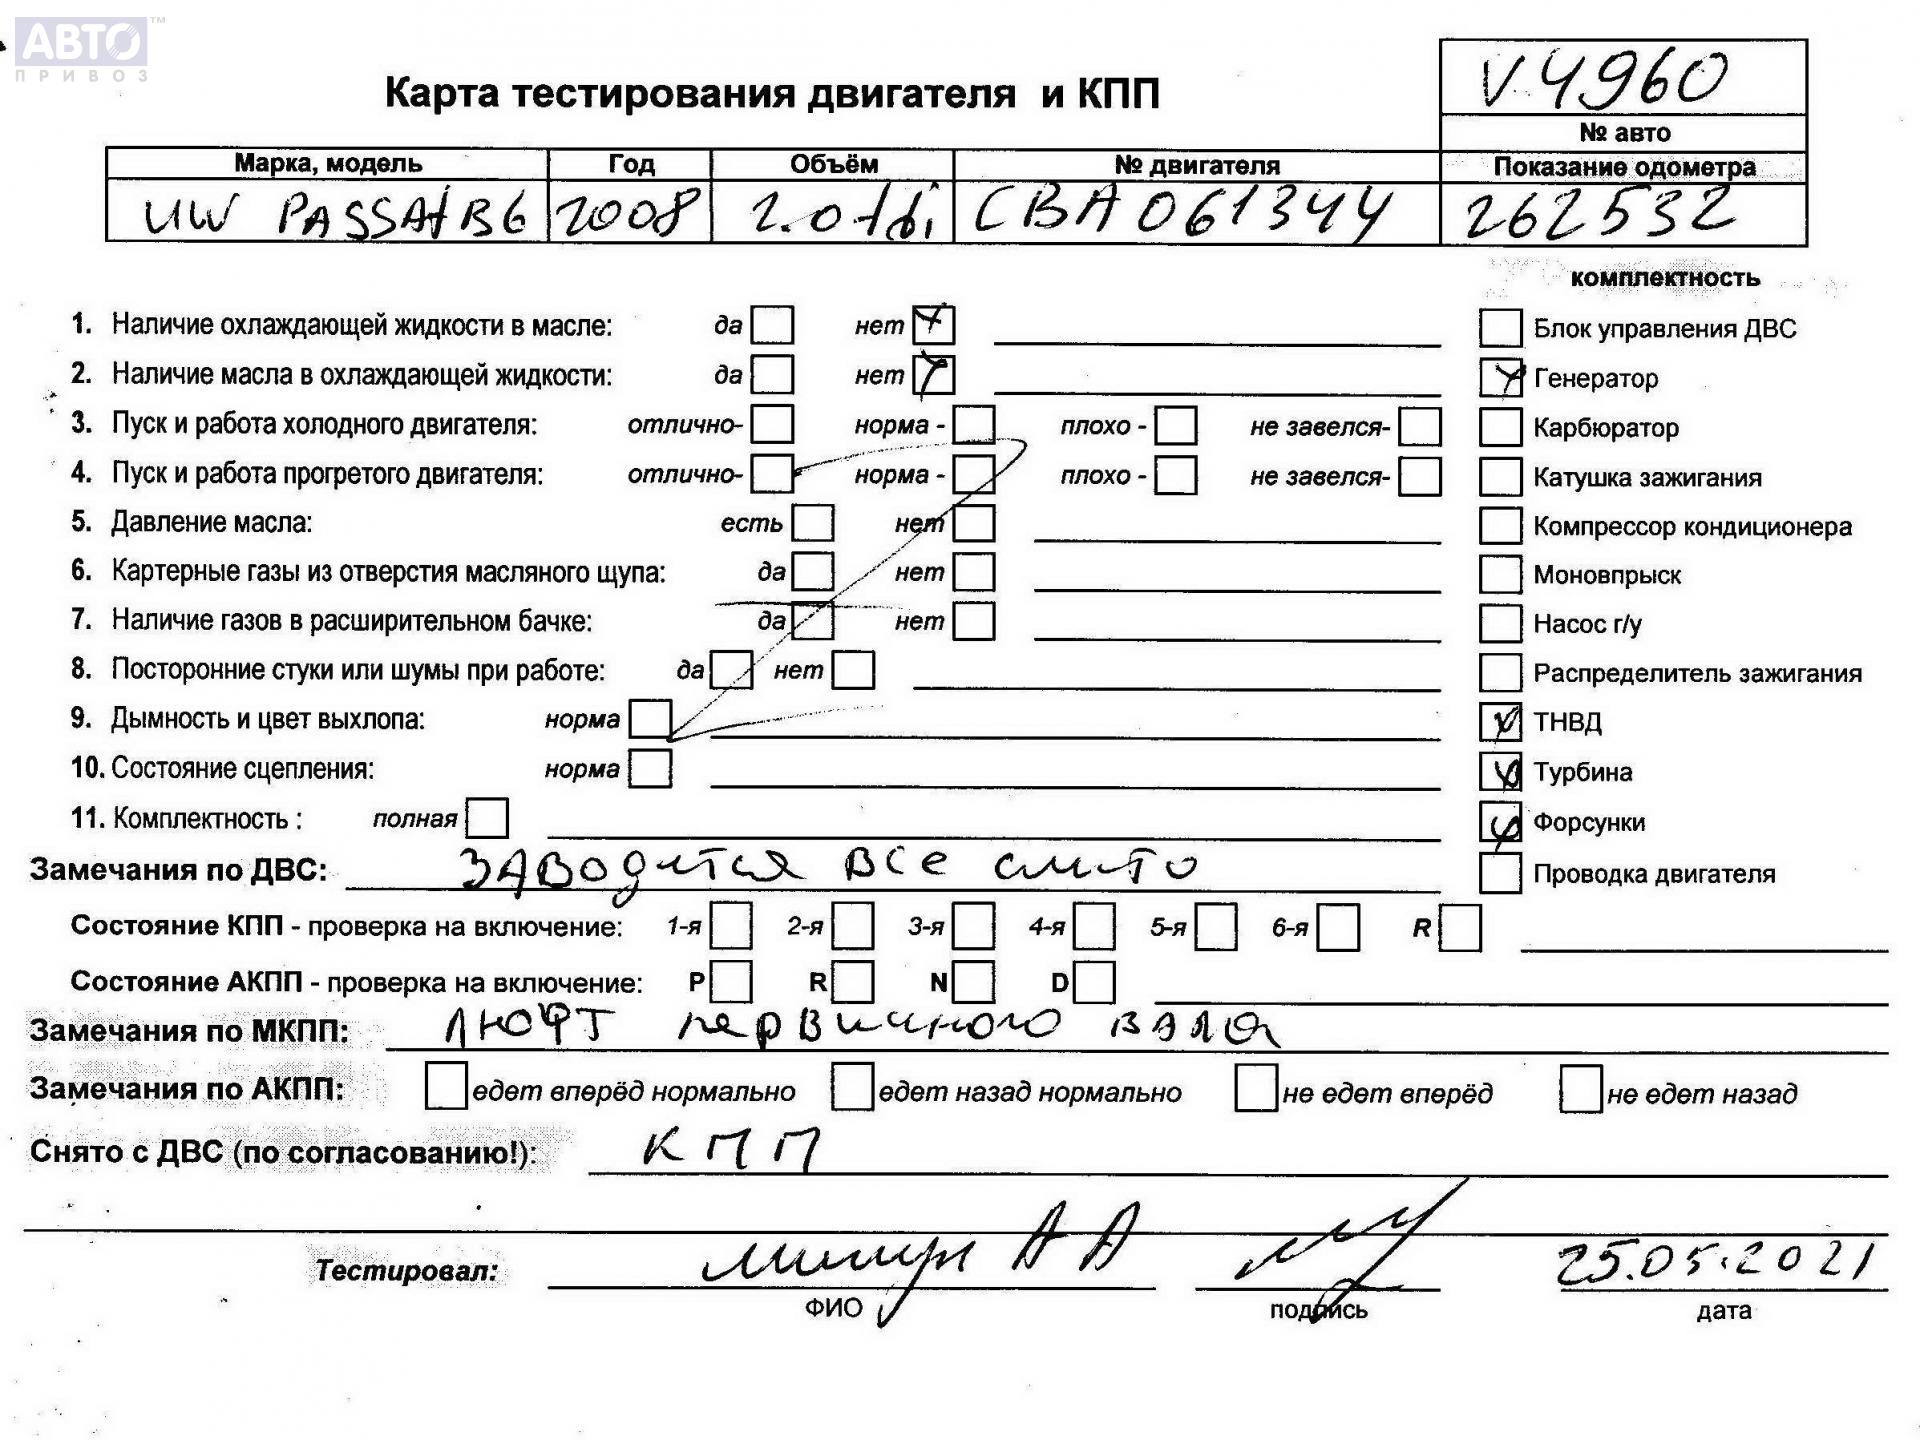 АВТО™
ПРИВОЗ
V4960
Карта тестирования двигателя и КПП
№ авто
Марка, модель Год Объём № двигателя Показание одометра
UW PASSAt B6 2008 2.0 tdi CBA 061344 262532
комплектность
1. Наличие охлаждающей жидкости в масле: да нет Блок управления ДВС
2. Наличие масла в охлаждающей жидкости: да нет Генератор
3. Пуск и работа холодного двигателя: отлично- норма - плохо - не завелся- Карбюратор
4. Пуск и работа прогретого двигателя: отлично- норма - плохо - не завелся- Катушка зажигания
5. Давление масла: есть нет Компрессор кондиционера
6. Картерные газы из отверстия масляного щупа: да нет Моновпрыск
7. Наличие газов в расширительном бачке: да нет Насос г/у
8. Посторонние стуки или шумы при работе: да нет Распределитель зажигания
9. Дымность и цвет выхлопа: норма ТНВД
10. Состояние сцепления: норма Турбина
11. Комплектность : полная Форсунки
Замечания по ДВС: ЗАВодится ВСЕ слито Проводка двигателя
Состояние КПП - проверка на включение: 1-я 2-я 3-я 4-я 5-я 6-я R
Состояние АКПП - проверка на включение: P R N D
Замечания по МКПП: ЛЮФТ первичного вала
Замечания по АКПП: едет вперёд нормально едет назад нормально не едет вперёд не едет назад
Снято с ДВС (по согласованию!): КПП
Тестировал: А А 25.05.2021
ФИО подпись дата